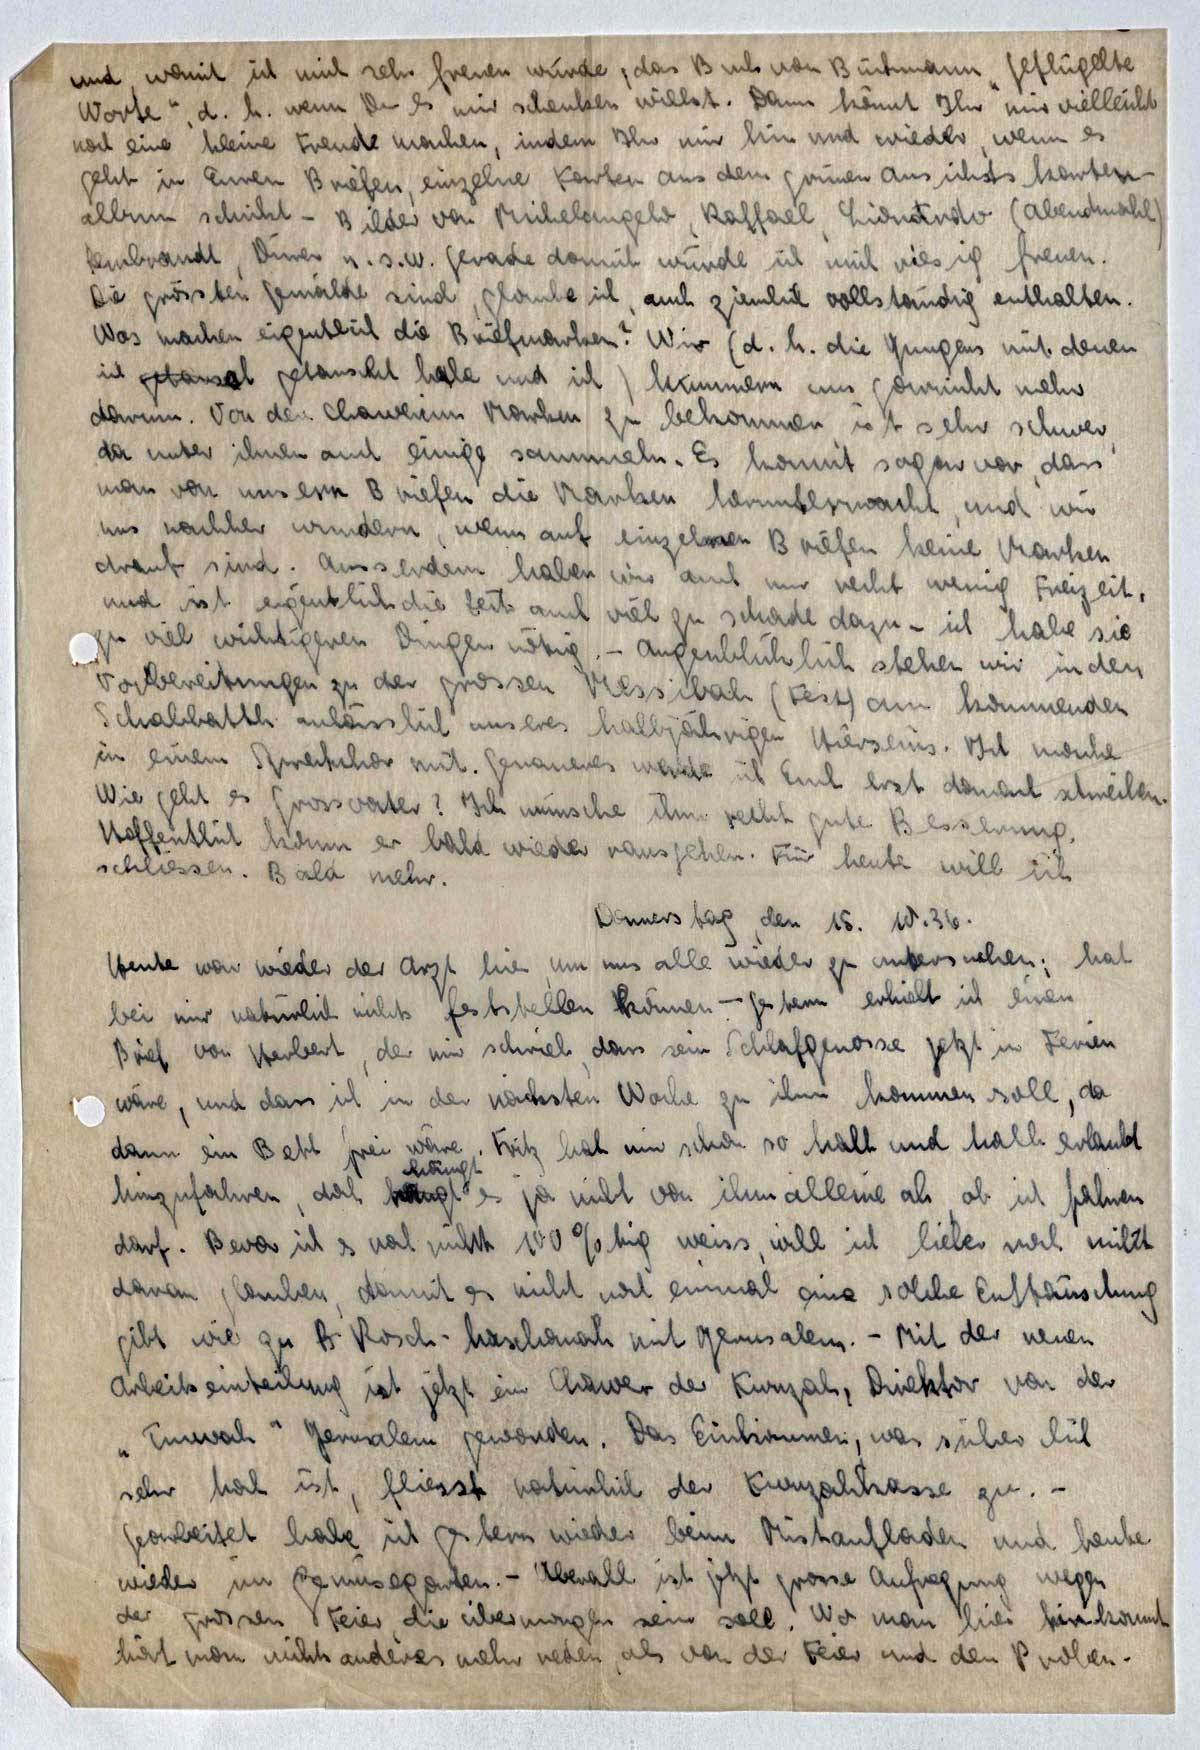 und womit ich mich sehr freuen würde, das Buch von Büchmann „Geflügelte
Worte", d. h. wenn Du es mir schenken willst. Dann könnt Ihr mir vielleicht
noch eine kleine Freude machen, indem Ihr mir hin und wieder, wenn es
geht in Euren Briefen, einzelne Karten aus dem grünen Ansichtskarten-
album schickt – Bilder von Michelangelo, Raffael, (Abendmahl)
Rembrandt, Dürer u. s. w. Gerade damit würde ich mich riesig freuen.
Die grössten Gemälde sind, glaube ich, auch ziemlich vollständig enthalten.
Was machen eigentlich die Briefmarken? Wir (d. h. die Jungens mit denen
ich getauscht habe und ich) kümmern uns garnicht mehr
darum. Von den Chawerim Marken zu bekommen, ist sehr schwer,
da unter ihnen auch einige sammeln. Es kommt sogar vor, dass
man von unsern Briefen die Marken heruntermacht, und wir
uns nachher wundern, wenn auf einzelnen Briefen keine Marken
drauf sind. Ausserdem haben wir auch nur recht wenig Freizeit,
und ist eigentlich die Zeit auch viel zu schade dazu – ich habe sie
zu viel wichtigeren Dingen nötig. – Augenblicklich stehen wir in den
Vorbereitungen zu der grossen Messibah (Fest) am kommenden
Schabbath anlässlich unseres halbjährigen Hierseins. Ich mache
in einem Sprechchor mit. Genaueres werde ich Euch erst danach schreiben.
Wie geht es Grossvater? Ich wünsche ihm recht gute Besserung.
Hoffentlich kann er bald wieder rausgehen. Für heute will ich
schliessen. Bald mehr.
Donnerstag, den 15. 10. 36.
Heute war wieder der Arzt hier, um uns alle wieder zu untersuchen; hat
bei mir natürlich nichts feststellen können – Gestern erhielt ich einen
Brief von Herbert, der mir schrieb, dass sein Schlafgenosse jetzt in Ferien
wäre, und dass ich in der nächsten Woche zu ihm kommen soll, da
dann ein Bett frei wäre. Fritz hat mir schon so halb und halb erlaubt
hinzufahren, doch hängt es ja nicht von ihm alleine ab, ob ich fahren
darf. Bevor ich es noch nicht 100%tig weiss, will ich lieber noch nicht
daran glauben, damit es nicht noch einmal eine solche Enttäuschung
gibt wie zu Rosch-haschanah mit Jerusalem. – Mit der neuen
Arbeitseinteilung ist jetzt ein Chawer der Kwuzah, Direktor von der
„Tnuvah" Jerusalem geworden. Das Einkommen, was sicherlich
sehr hoch ist, fliesst natürlich der Kwuzahkasse zu. –
Gearbeitet habe ich gestern wieder beim Mistaufladen und heute
wieder im Gemüsegarten. – Überall ist jetzt grosse Aufregung wegen
der grossen Feier, die übermorgen sein soll. Wo man hier hinkommt
hört man nichts anderes mehr reden, als von der Feier und den Proben.